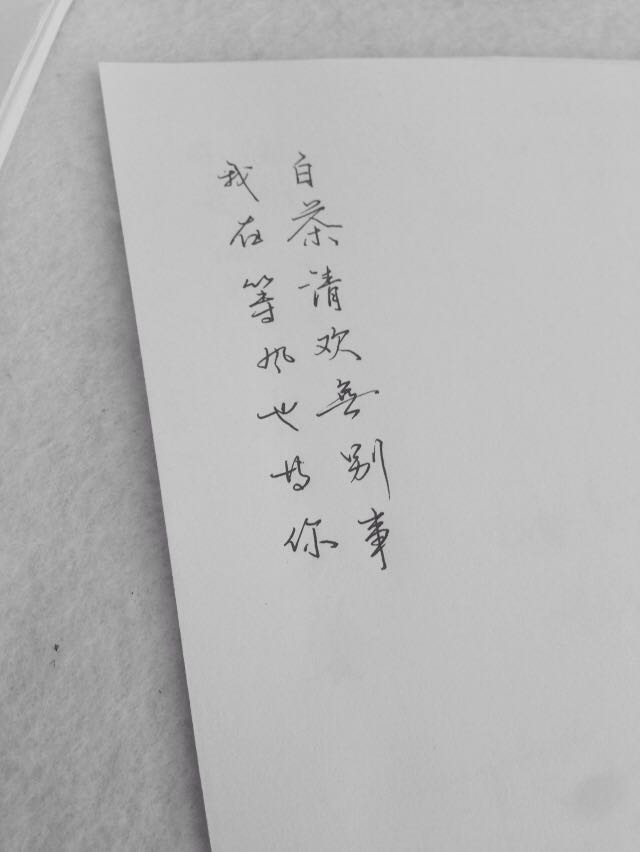 白茶清欢無别事
我在等风也等你